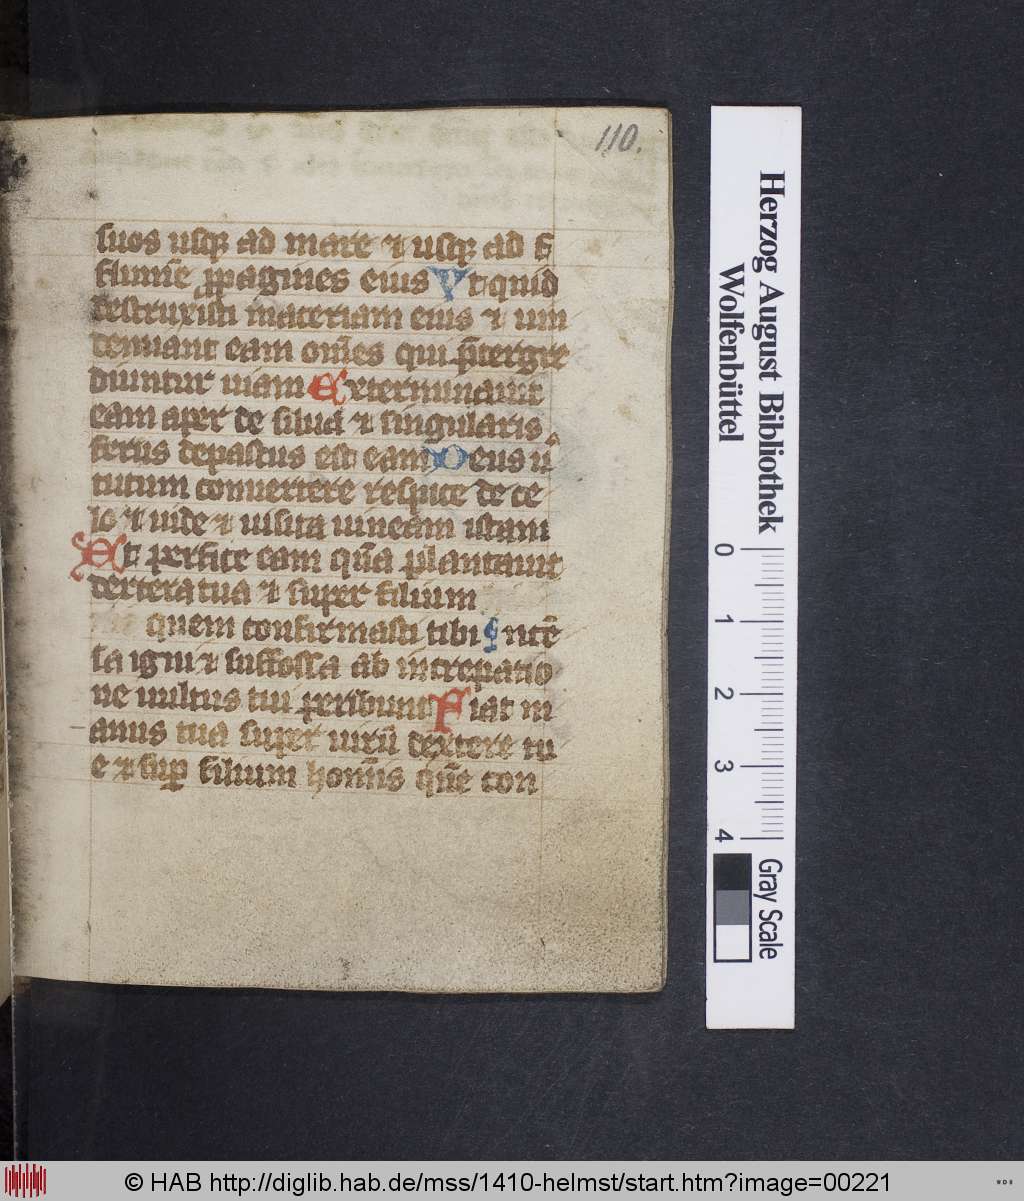 110.
suos usqꝫ ad mare ⁊ usqꝫ ad f
flumīe ꝓpagines eius Vt quid
destruxisti maceriam eius ⁊ uin
demiant eam om̄es qui p̄tergre
diuntur uiam Exterminauit
eam aper de silua ⁊ singularis
ferus depastus est eam Deus uir
tutum conuertere respice de ce
lo ⁊ uide ⁊ uisita uineam istam
Et perfice eam quā plantauit
dextera tua ⁊ super filium
quem confirmasti tibi Incē
sa igni ⁊ suffossa ab increpatio
ne uultus tui peribunt Fiat m
anus tua super uirū dextere tu
e ⁊ suꝑ filium hom̄is quē con
Herzog August Bibliothek
Wolfenbüttel
0 1 2 3 4
Gray Scale
© HAB http://diglib.hab.de/mss/1410-helmst/start.htm?image=00221